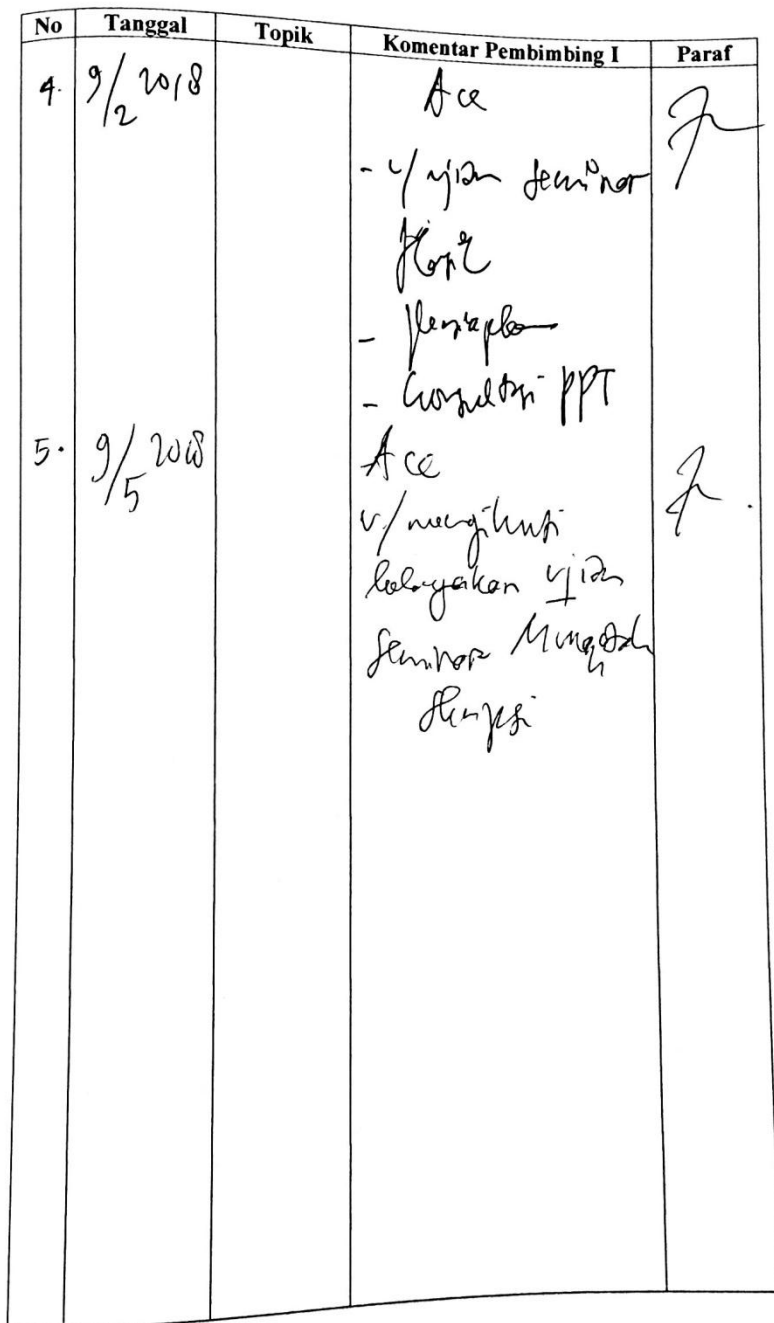 No Tanggal Topik Komentar Pembimbing I Paraf
4. 9/2 2018 Acc
- u/ ujian seminar
Hasil
-
- Konsultasi PPT
5. 9/5 2018 Acc
u/ mengikuti
ujian
seminar Munaqosah
Skripsi